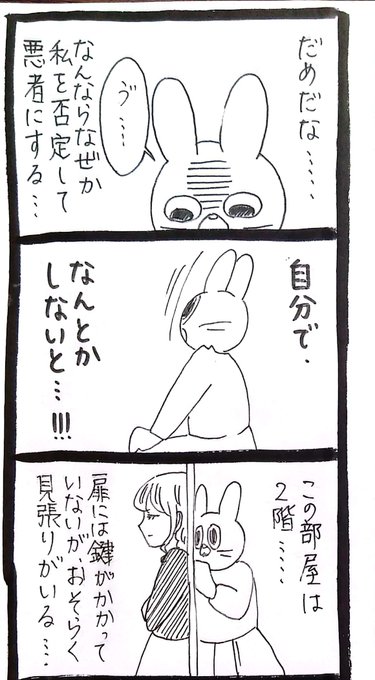 だめだな……
ゔ……
なんならなぜか
私を否定して
悪者にする…
自分で、
なんとか
しないと…!!!
この部屋は
2階……
扉には鍵がかかって
いないが、おそらく
見張りがいる…。